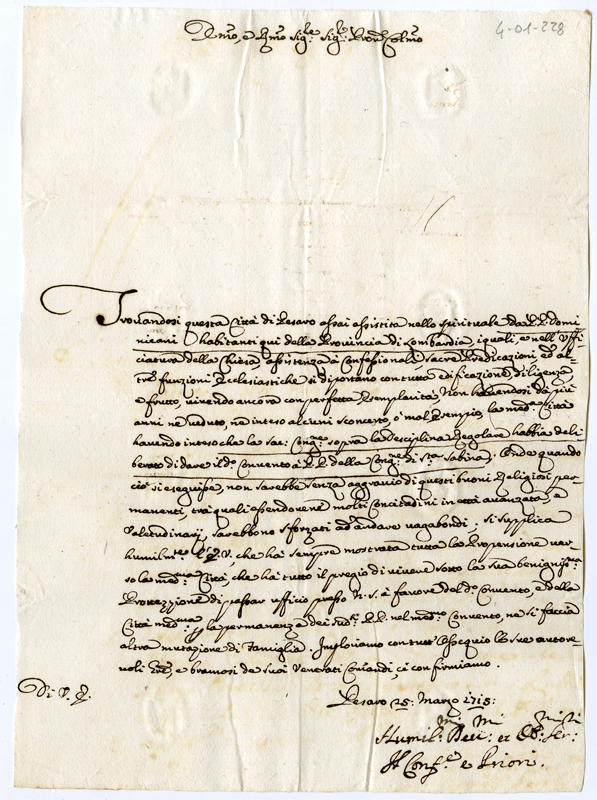 4-01-228
Emo, e Rmo Sig.re Sig.r Pron Colmo
Trouandosi questa Città di Pesaro assai assistita nello spirituale da PP. Domi
nicani habitanti qui della Prouincia di Lombardia, i quali, e nell'Uffi
ciatura della Chiesa, assistenza à Confessionali, sacre Predicazioni, ed al=
tre funzioni Ecclesiastiche si diportano con tutta edificazione, diligenza
e frutto, viuendo ancora con perfetta Esemplarità. Non hauendosi da più
anni ne veduto, ne inteso alcuni sconcerto, ò mal Esempio, la med.ma Città
hauendo inteso che la sac: Cong.ne sopra la Disciplina Regolare habbia deli
berato di dare il d.o Conuento à PP. della Cong.ne di S.ta Sabina; Onde quando
ciò si eseguisse, non sarebbe senza aggrauio di questi buoni Religiosi per
manenti, trà quali essendouene molti Concitadini in età auanzata, e
Valetudinarij, sarebbono sforzati ad andare vagabondi. Si supplica
humilm.te l'E.V., che hà sempre mostrata tutta la Propensione ver
so la med.ma Città, che hà tutto il pregio di viuere sotto la sua benigniss.ma
Protezzione di passar ufficio presso N.S. à fauore del d.o Conuento, e della
Città med.ma p la permanenza dei sud.i PP. nel med.mo Conuento, ne si faccia
altra mutazione di Famiglia. Imploriamo con tutt'Ossequio le sue autore=
uoli, e bramosi de suoi Venerati Comandi, ci confirmiamo.
Di V.E.
Pesaro 25: Marzo 1715:
Humil:mi Deu:mi et Ob:mi Ser:
Il Conf.re e Priori.